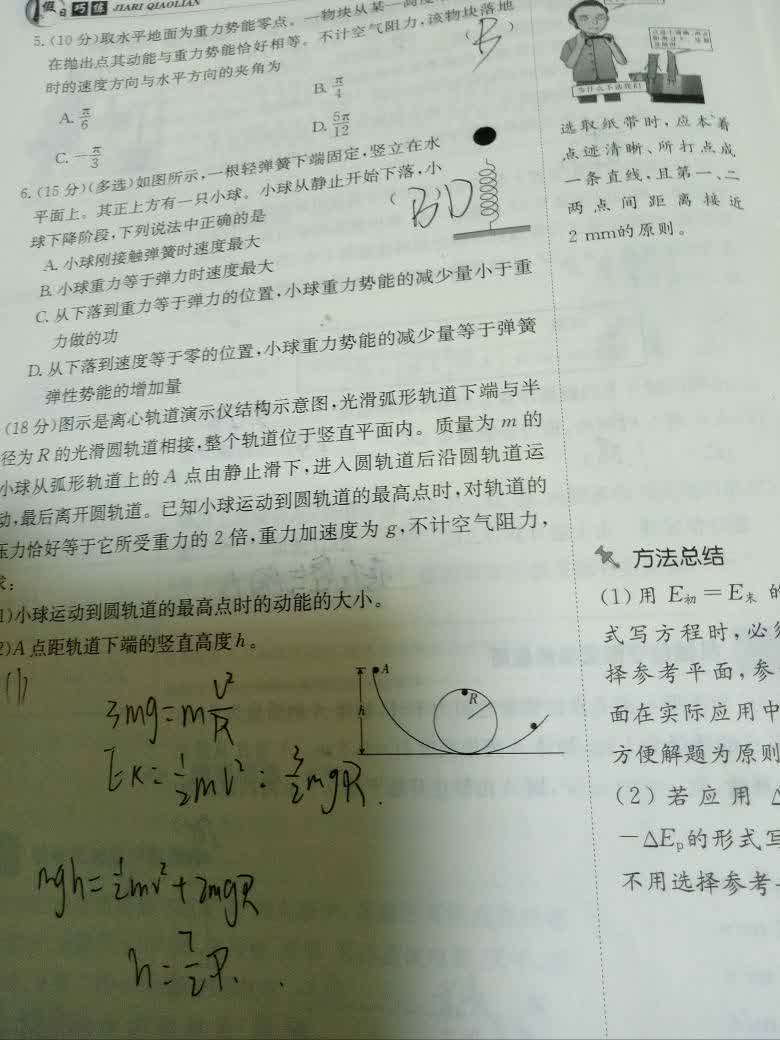 假日巧练 JIARI QIAOLIAN
5.(10分)取水平地面为重力势能零点。一物块从某一高度
在抛出点其动能与重力势能恰好相等。不计空气阻力,该物块落地
时的速度方向与水平方向的夹角为 ( B
A. π/6
B. π/4
C. π/3
D. 5π/12
6.(15分)(多选)如图所示,一根轻弹簧下端固定,竖立在水
平面上。其正上方有一只小球。小球从静止开始下落,小
球下降阶段,下列说法中正确的是 ( BD )
A. 小球刚接触弹簧时速度最大
B. 小球重力等于弹力时速度最大
C. 从下落到重力等于弹力的位置,小球重力势能的减少量小于重
力做的功
D. 从下落到速度等于零的位置,小球重力势能的减少量等于弹簧
弹性势能的增加量
(18分)图示是离心轨道演示仪结构示意图,光滑弧形轨道下端与半
径为R的光滑圆轨道相接,整个轨道位于竖直平面内。质量为m的
小球从弧形轨道上的A点由静止滑下,进入圆轨道后沿圆轨道运
动,最后离开圆轨道。已知小球运动到圆轨道的最高点时,对轨道的
压力恰好等于它所受重力的2倍,重力加速度为g,不计空气阻力,
求:
1)小球运动到圆轨道的最高点时的动能的大小。
2)A点距轨道下端的竖直高度h。
A
R
h
(1)
3mg=m v²/R
Ek=½mv²=3/2mgR.
mgh=½mv²+2mgR
h=7/2R.
选取纸带时,应本着
点迹清晰、所打点成
一条直线,且第一、二
两点间距离接近
2 mm的原则。
方法总结
(1)用E初=E末的
式写方程时,必须
择参考平面,参
面在实际应用中
方便解题为原则
(2)若应用Δ
-ΔEp的形式写
不用选择参考